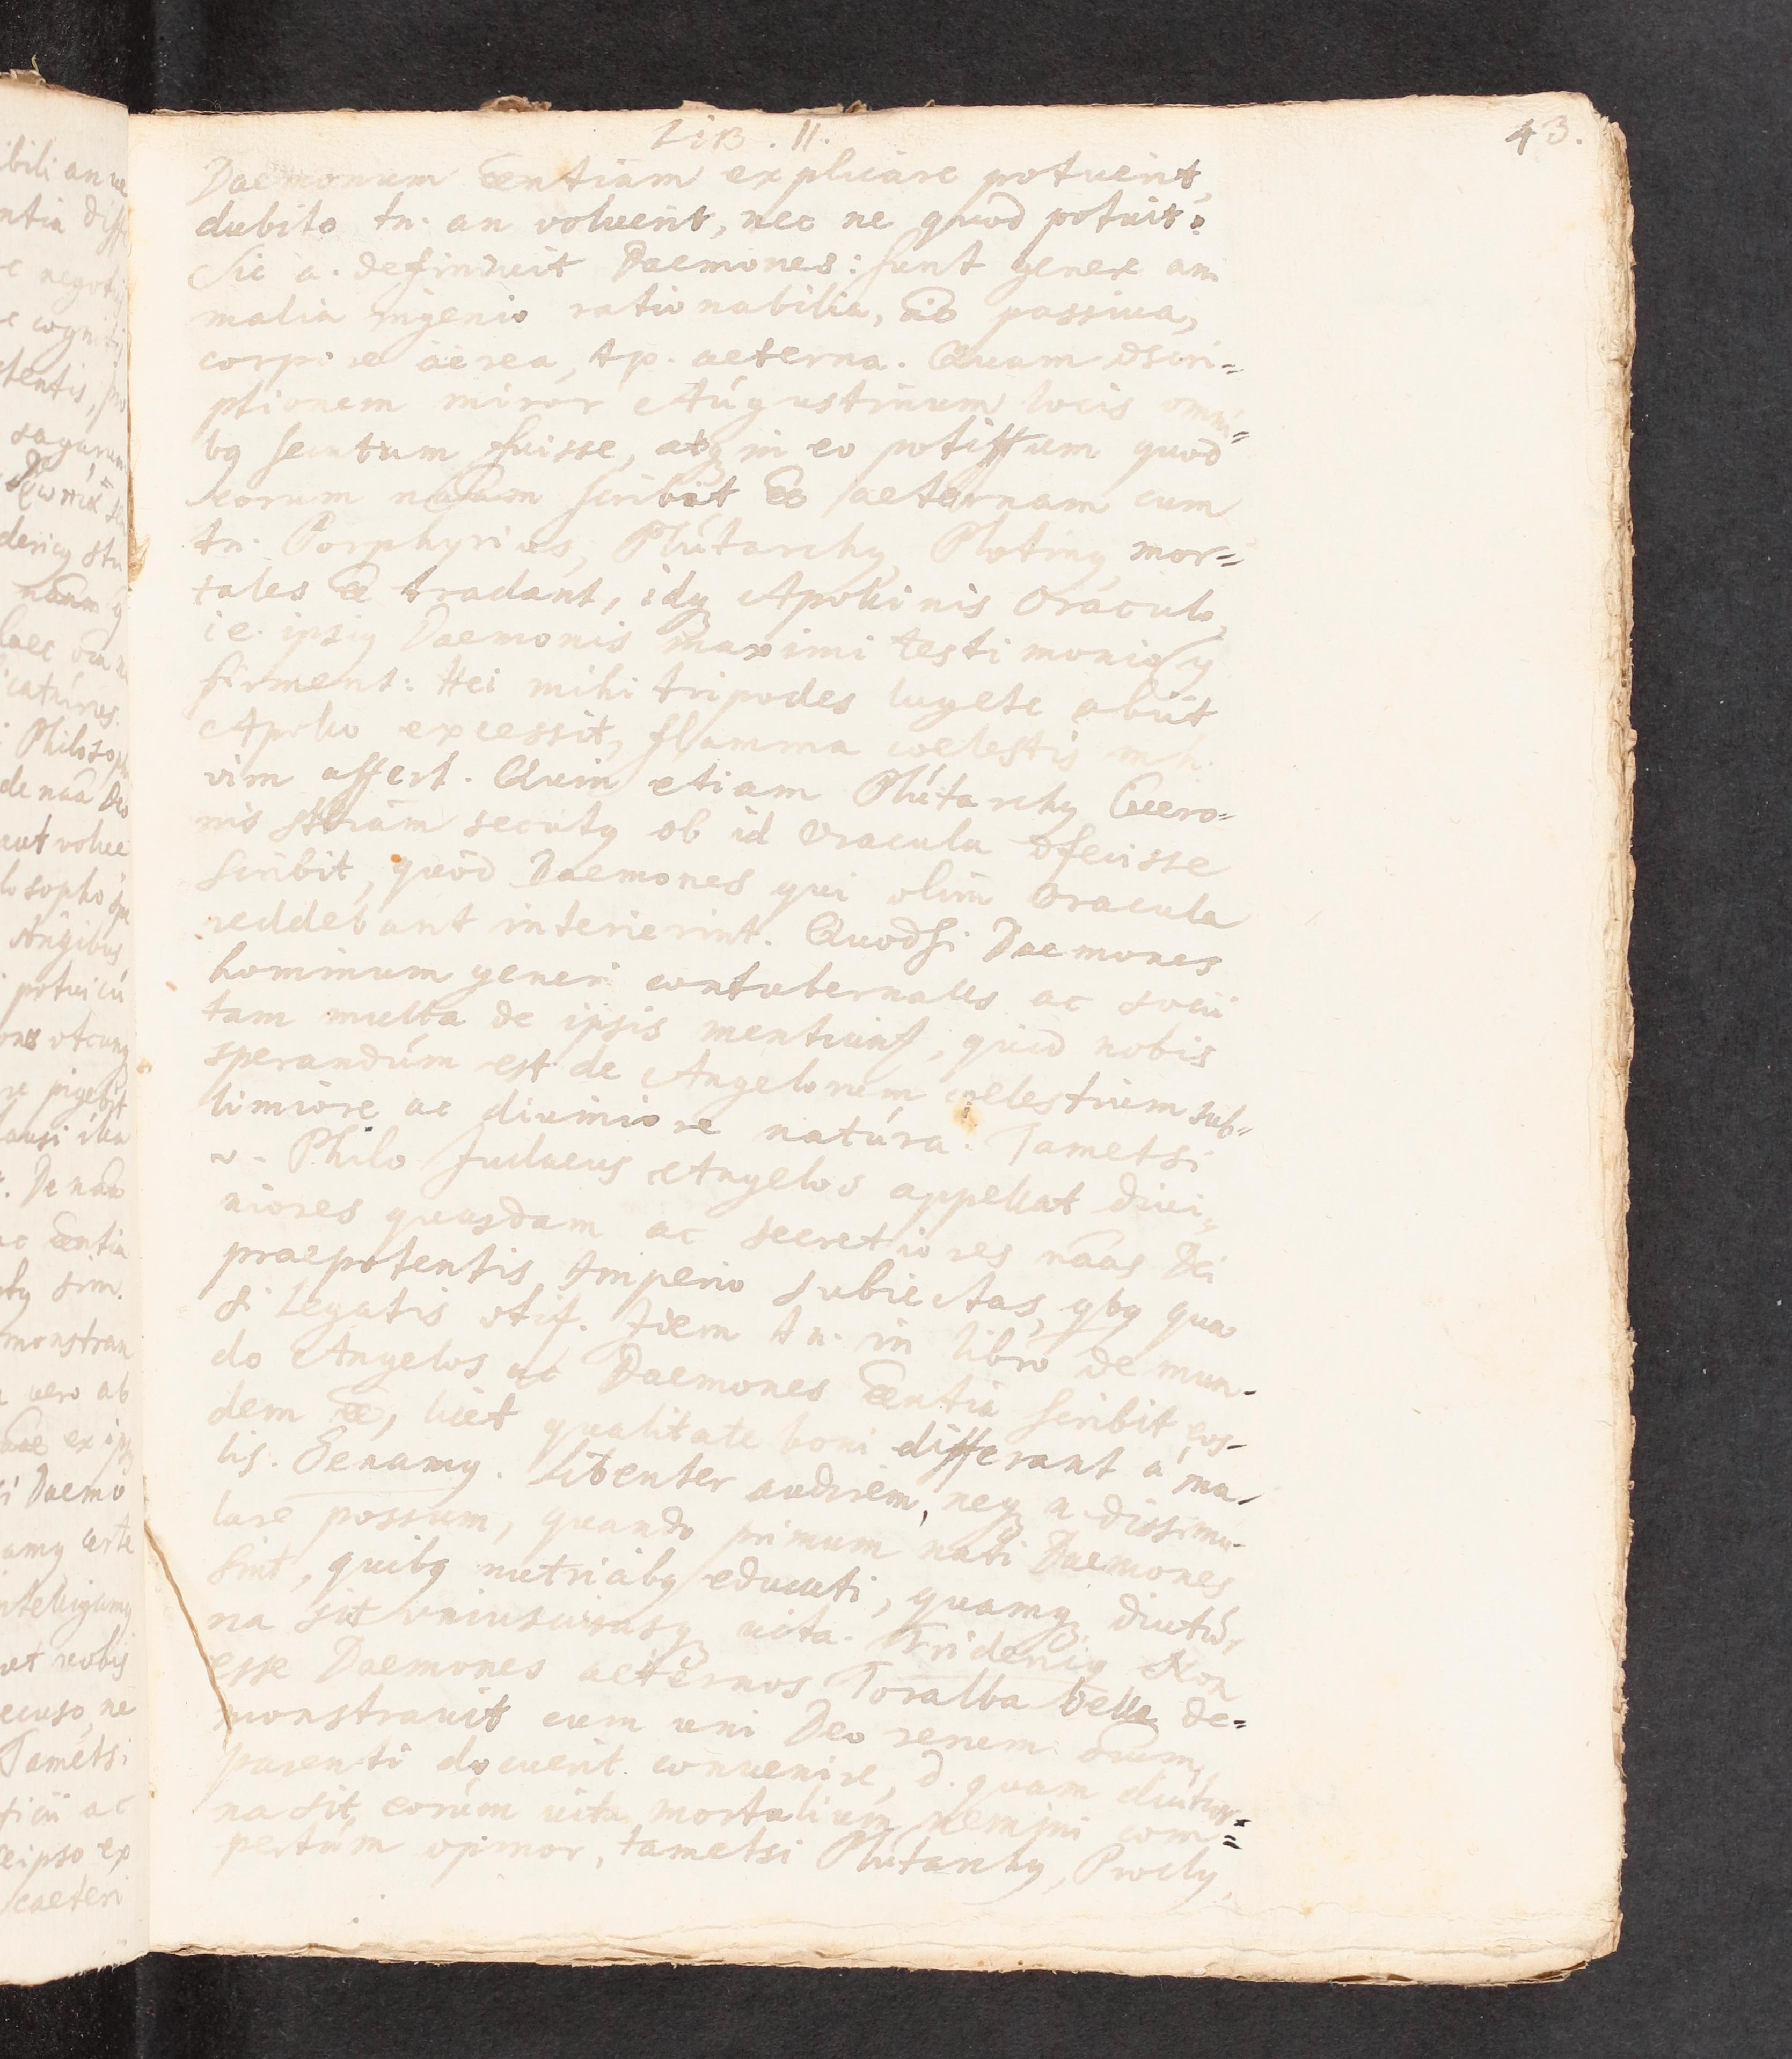 LiB. II. 43.
Daemonum eentiam explicare potuerit,
dubito tn. an voluerit, nec ne quod potuit?
Sic a. definiuit Daemones: sunt genere ani
malia ingenio rationabilia, aio passiua,
corpore aërea, tp. aeterna. Quam dscri=
ptionem miror Augustinum locis omni=
bq secutum fuisse, atq in eo potissum quod
eorum naam scribit eo aeternam cum
tn. Porphyrius, Plutarchq, Plotinq mor=
tales ee tradant, idq Apollinis Oraculo,
ie. ipsiq Daemonis maximi testimonio
firment: Hei mihi tripodes lugete abiit
Apollo excessit, flamma coelestis mh.
vim affert. Quin etiam Plutarchq Cicero=
nis sttiam secutq ob id Oracula dfecisse
scribit, quod Daemones qui olim Oracula
reddebant interierint. Quodsi Daemones
hominum generi contubernales ac socii
tam multa de ipsis mentiunt, quid nobis
sperandum est de Angelorum coelestium sub=
limiore ac diuiniore natura. Tametsi
v. Philo Judaeus Angelos appellat diui=
niores quasdam ac secretiores naas Dei
praepotentis Imperio subiectas, qbq qua
si Legatis vtit. Idem tn. in libro de mun-
do Angelos ac Daemones eentia scribit eos-
dem ee, licet qualitate boni differant a ma-
lis. Senamq. Libenter audirem, neq n. dissimu-
lare possum, quando primum nati Daemones
sint, quibq nutriabq educati, quamq diutur
na sit vniuscuiusq uita. Fridericq Non
esse Daemones aeternos Toralba belle de=
monstrauit cum uni Deo rerum oium,
parenti docuerit conuenire, d. quam diutur=
na sit eorum uita mortalium nemini com=
pertum opinor, tametsi Plutarchq, Proclq,